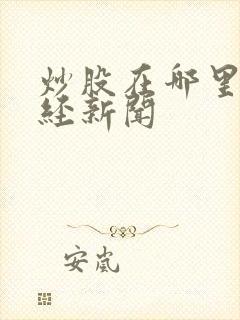 炒股在哪里
经新闻
安岚